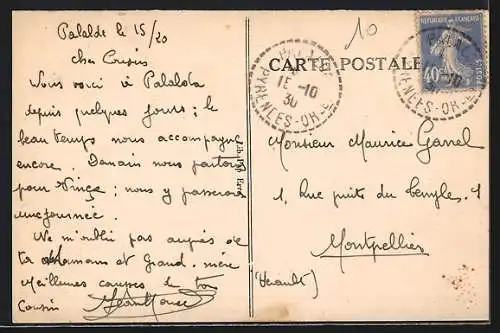 Palalda le 15/10
cher Cousin
Nous voici à Palalda
depuis quelques jours ; le
beau temps nous accompagne
encore. Demain nous partons
pour ; nous y passerons
une journée.
Ne m'oublie pas auprès de
ta Maman et Grand-mère
Meilleures de ton
cousin
CARTE POSTALE
10
15 -10
30
PYRENEES-OR
RÉPUBLIQUE FRANÇAISE
40
POSTES
Monsieur Maurice Garrel
1, Rue puits du Temple. 1
Montpellier
(Hérault)